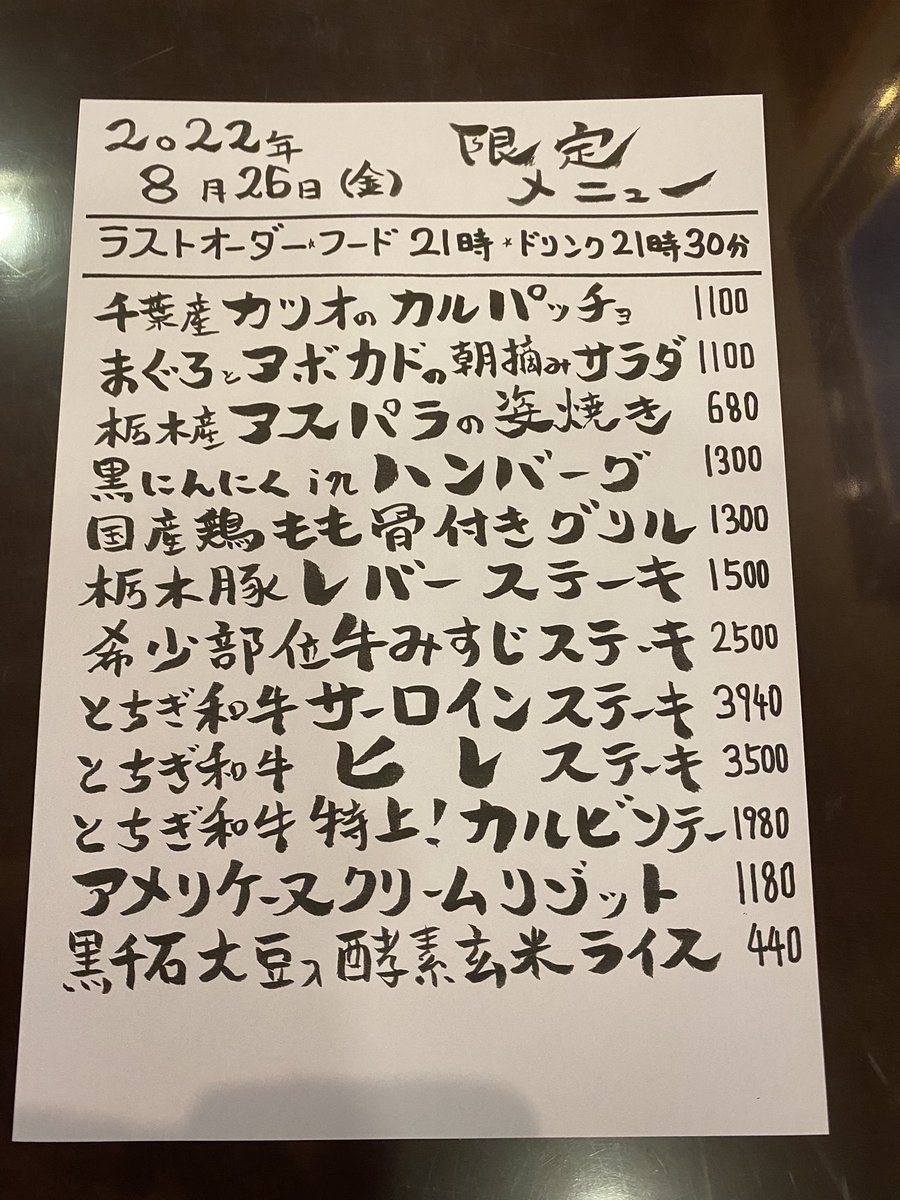 2022年
8月26日(金)
限定
メニュー
ラストオーダー*フード 21時*ドリンク21時30分
千葉産カツオのカルパッチョ 1100
まぐろとアボカドの朝摘みサラダ 1100
栃木産アスパラの姿焼き 680
黒にんにくinハンバーグ 1300
国産鶏もも骨付きグリル 1300
栃木豚レバーステーキ 1500
希少部位牛みすじステーキ 2500
とちぎ和牛サーロインステーキ 3940
とちぎ和牛ヒレステーキ 3500
とちぎ和牛特上!カルビソテー 1980
アメリケーヌクリームリゾット 1180
黒千石大豆入酵素玄米ライス 440